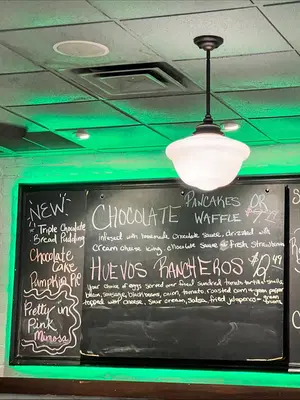 NEW
Triple Chocolate
Bread Pudding
Chocolate
Cake
Pumpkin Pie
Pretty in
Pink
Mimosa
CHOCOLATE PANCAKES OR
WAFFLE
infused with homemade Chocolate Sauce, drizzled with
cream cheese icing, chocolate sauce & fresh strawberries
HUEVOS RANCHEROS $12.49
Your choice of eggs served over four sundried tomato tortilla shells,
bacon, sausage, black beans, onion, tomato, roasted corn & green pepper
topped with cheese, sour cream, salsa, fried jalapenos & green
onions